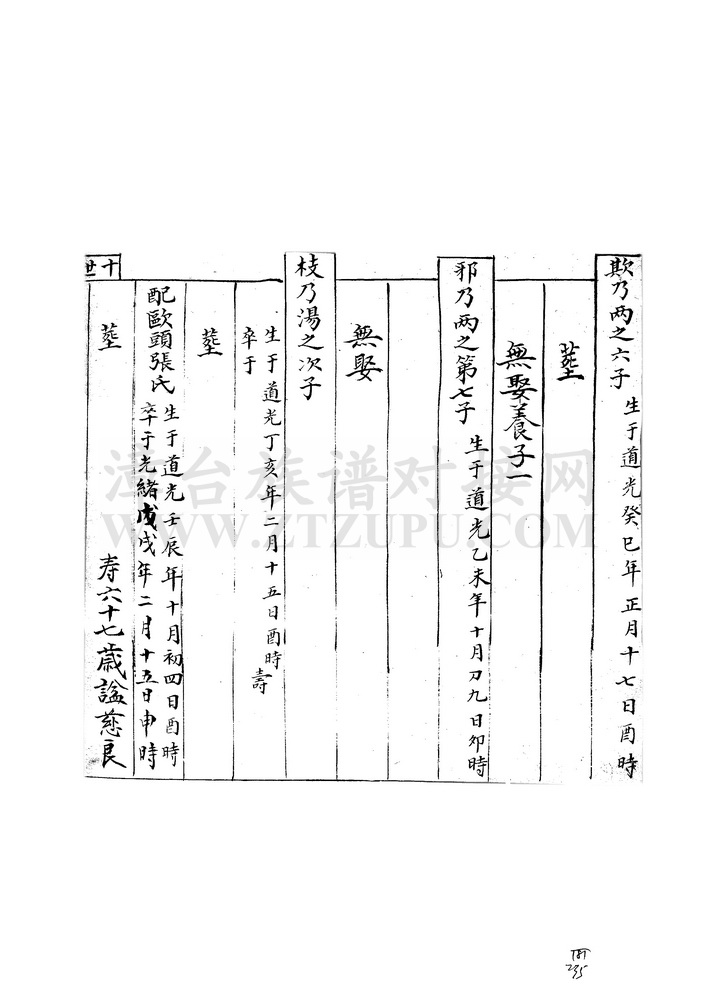 欺乃两之六子 生于道光癸巳年正月十七日酉時
塟
無娶養子一
邪乃两之第七子 生于道光乙未年十月刀九日卯時
無娶
枝乃湯之次子
生于道光丁亥年二月十五日酉時 壽
卒于
塟
配歐頭張氏 生于道光壬辰年十月初四日酉時
卒于光緒戊戌年二月十五日申時
塟 寿六十七歲諡慈良
十世
澎台族谱对接网
WWW.ZTZUPU.COM
235